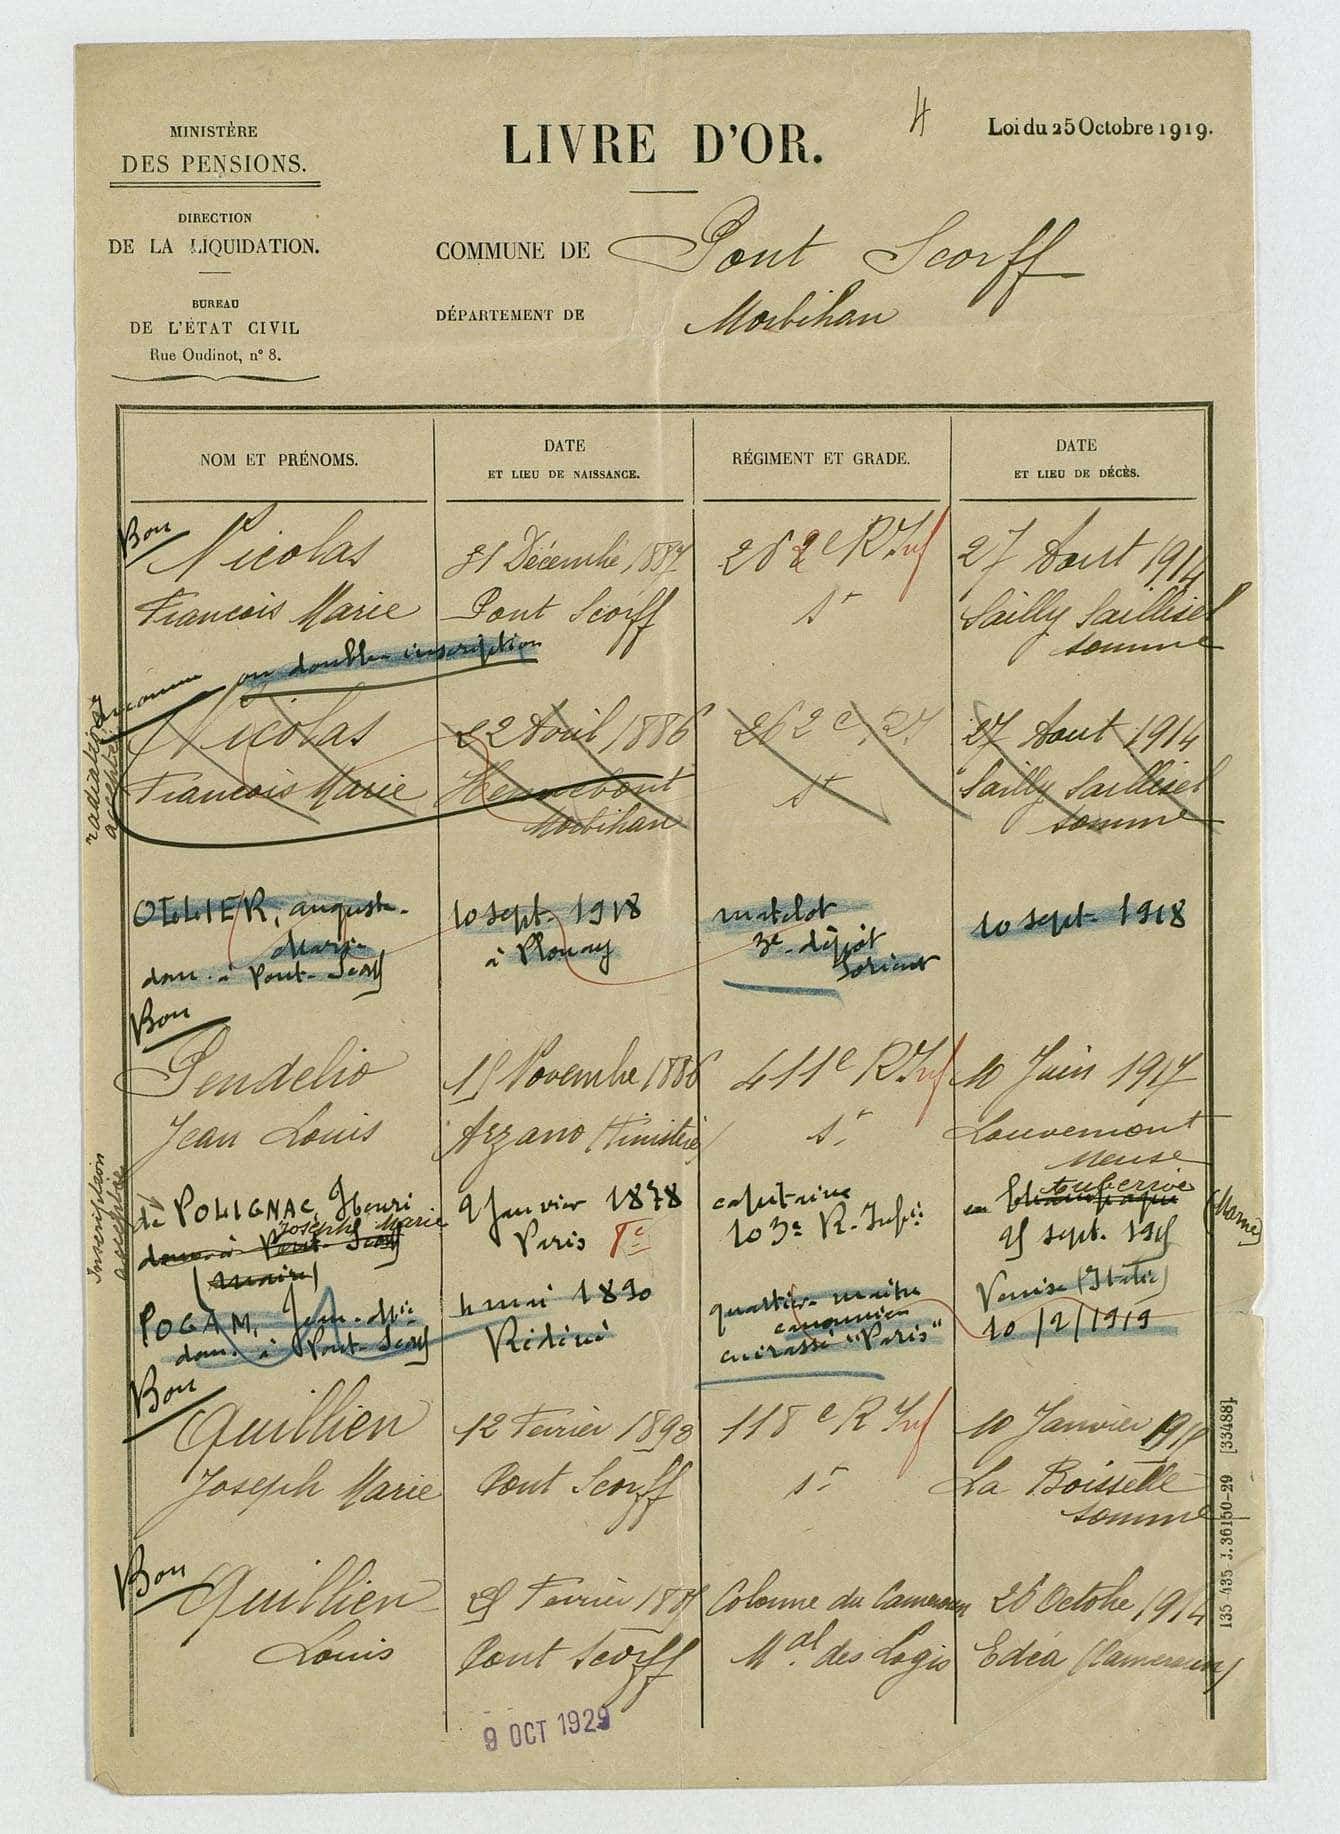 4
Loi du 25 Octobre 1919.
MINISTÈRE
DES PENSIONS.
DIRECTION
DE LA LIQUIDATION.
BUREAU
DE L'ÉTAT CIVIL
Rue Oudinot, n° 8.
LIVRE D'OR.
COMMUNE DE Pont Scorff
DÉPARTEMENT DE Morbihan
NOM ET PRÉNOMS.
DATE
ET LIEU DE NAISSANCE.
RÉGIMENT ET GRADE.
DATE
ET LIEU DE DÉCÈS.
Bon
Nicolas
31 Décembre 1887
262e R. Inf
27 Aout 1914
François Marie
Pont Scorff
St
Sailly Saillisel
Somme
inconnu ou double inscription
radiation
acceptée
Nicolas
22 Avril 1886
262e R.I.
27 Aout 1914
François Marie
Hennebont
St
Sailly Saillisel
Morbihan
Somme
OLLIER, Auguste-
10 sept. 1918
matelot
10 sept. 1918
Marie
à Plouay
3e dépôt
dom. à Pont-Scorff
Lorient
Bon
Pendelio
15 Novembre 1886
411e R. Inf
10 Juin 1917
Jean Louis
Arzano (Finistère)
St
Louvemont
Meuse
Inscription
acceptée
de POLIGNAC, Henri
9 Janvier 1878
capitaine
en Champagne
Auberive
(Marne)
Joseph Marie
Paris
103e R. Infie
25 sept. 1915
dom. à Pont-Scorff
(Maire)
POGAM, Jean-Mie
4 mai 1890
quartier-maître
Venise (Italie)
dom. à Pont-Scorff
Rédéné
canonnier
10/2/1919
cuirassé "Paris"
Bon
Quillien
12 Fevrier 1893
118e R Inf
10 Janvier 1915
Joseph Marie
Pont Scorff
St
La Boisselle
Somme
Bon
Quillien
Fevrier
Colonne du Cameroun
26 Octobre 1914
Louis
Pont Scorff
Mal des Logis
Edéa (Cameroun)
9 OCT 1929
135-435-J.36150-29 [33488].